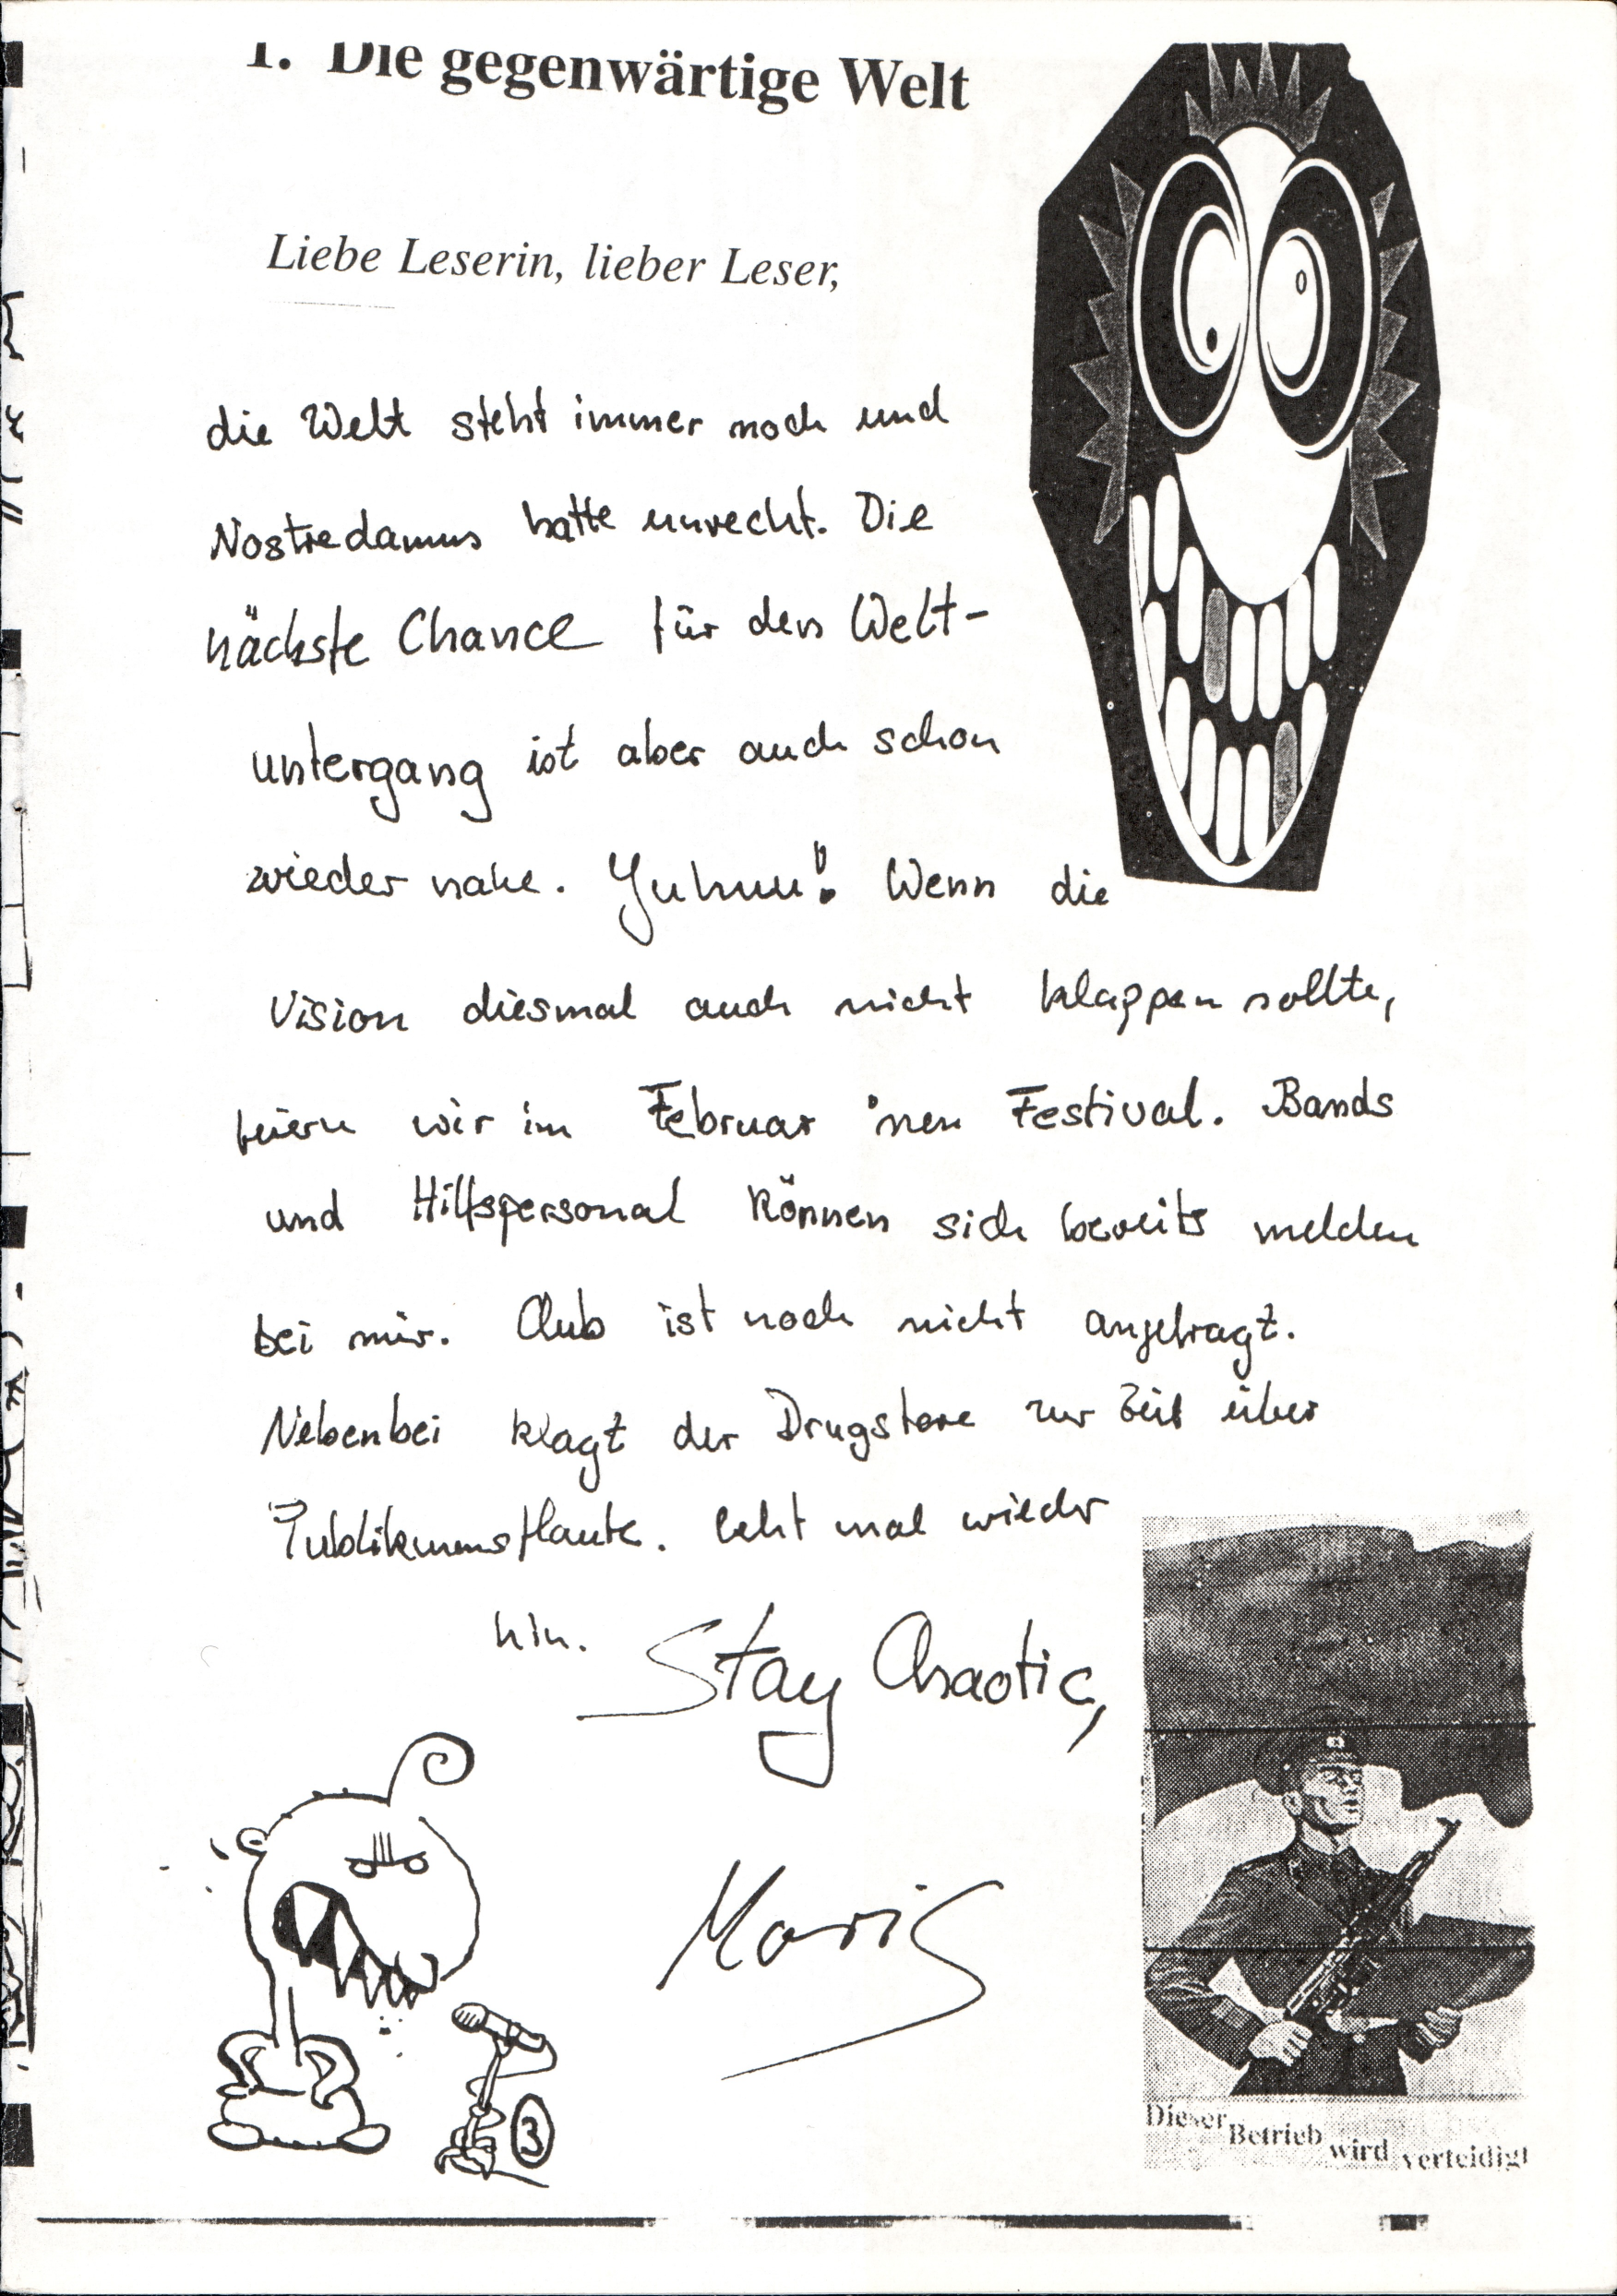 1. Die gegenwärtige Welt
Liebe Leserin, lieber Leser,
die Welt steht immer noch und
Nostredamus hatte unrecht. Die
nächste Chance für den Welt-
untergang ist aber auch schon
wieder nahe. Yuhuu! Wenn die
Vision diesmal auch nicht klappen sollte,
feiern wir im Februar 'nen Festival. Bands
und Hilfspersonal können sich bereits melden
bei mir. Club ist noch nicht angefragt.
Nebenbei klagt der Drugstore zur Zeit über
Publikumsflaute. Geht mal wieder
hin. Stay Chaotic,
Moriz
3
Dieser Betrieb wird verteidigt